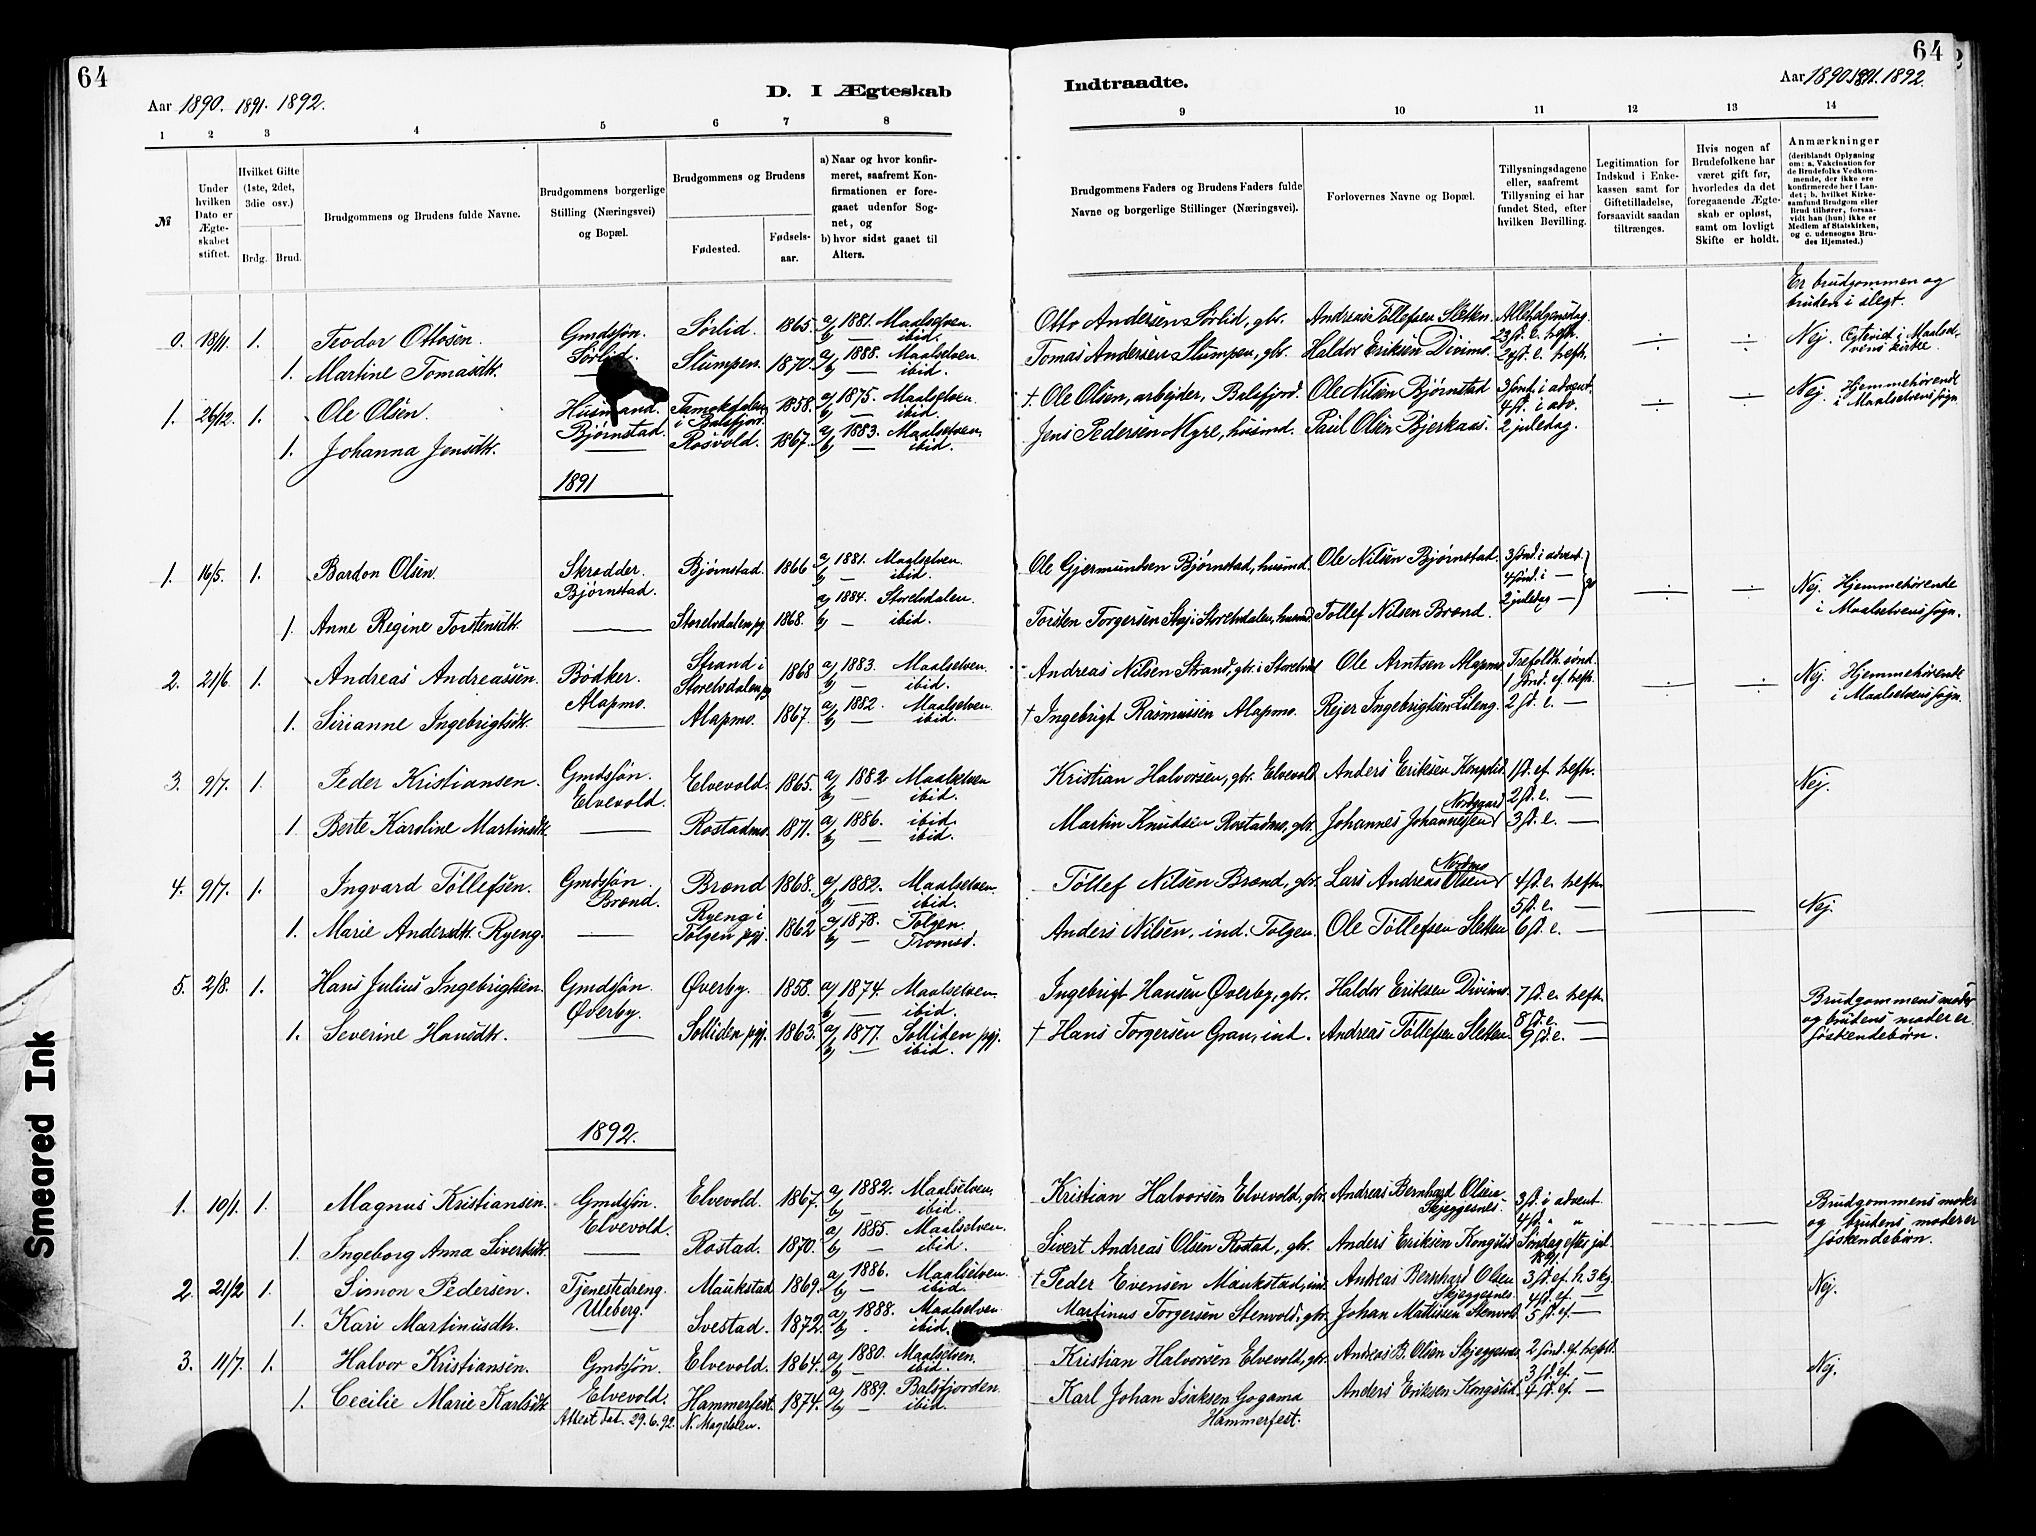 64
Aar 1890. 1891. 1892.
D. I Ægteskab
1 2 3 4 5 6 7 8
№
Under hvilken Dato er Ægteskabet stiftet.
Hvilket Gifte (1ste, 2det, 3die osv.)
Brdg. Brud.
Brudgommens og Brudens fulde Navne.
Brudgommens borgerlige Stilling (Næringsvei) og Bopæl.
Brudgommens og Brudens
Fødested. Fødselsaar.
a) Naar og hvor konfirmeret, saafremt Konfirmationen er foregaaet udenfor Sognet, og
b) hvor sidst gaaet til Alters.
0. 18/11. 1. Teodor Ottosen. Gmdsøn. Sørlid. 1865. a/ 1881. Maalselven.
Sørlid. b/ — ibid.
1. Martine Tomasdtr. — Stumpen. 1870. a/ 1888. Maalselven.
b/ — ibid.
1. 26/12. 1. Ole Olsen. Husmand. Tamokdalen i Balsfjord. 1858. a/ 1875. Maalselven.
Bjørnstad. b/ — ibid.
1. Johanna Jensdtr. — Rosvold. 1867. a/ 1883. Maalselven.
b/ — ibid.
1891
1. 16/5. 1. Bardon Olsen. Skrædder. Bjørnstad. 1866 a/ 1881. Maalselven.
Bjørnstad. b/ — ibid.
1. Anne Regine Torstensdtr. — Storelvdalen pgj. 1868. a/ 1884. Storelvdalen.
b/ — ibid.
2. 21/6. 1. Andreas Andreassen. Bødker. Strand i Storelvdalen pgj 1868 a/ 1883. Maalselven.
Alapmo. b/ — ibid.
1. Sirianne Ingebrigtsdtr. — Alapmo. 1867. a/ 1882. Maalselven.
b/ — ibid.
3. 9/7. 1. Peder Kristiansen. Gmdsøn. Elvevold. 1865. a/ 1882 Maalselven
Elvevold. b/ — ibid.
1. Berte Karoline Martinsdtr. — Rostadmo. 1871. a/ 1886. ibid.
b/ — ibid.
4. 9/7. 1. Ingvard Tollefsen. Gmdsøn. Brænd 1868. a/ 1882. Maalselven.
Brænd. b/ — ibid.
1. Marie Andersdtr. Ryeng. — Ryeng i Tolgen pgj. 1862 a/ 1878. Tolgen.
b/ — Tromsø.
5. 2/8. 1. Hans Julius Ingebrigtsen. Gmdsøn. Øverby. 1858. a/ 1874. Maalselven.
Øverby. b/ — ibid.
1. Severine Hansdtr. — Solliden pgj. 1863. a/ 1877. Solliden pgj.
b/ — ibid.
1892.
1. 10/1. 1. Magnus Kristiansen. Gmdsøn. Elvevold. 1867. a/ 1882. Maalselven.
Elvevold. b/ — ibid.
1. Ingeborg Anna Sivertsdtr. — Rostad. 1870. a/ 1885. Maalselven.
b/ — ibid.
2. 21/2 1. Simon Pedersen. Tjenestedreng. Maukstad 1869. a/ 1886. Maalselven.
Uleberg. b/ — ibid.
1. Kari Martinusdtr. — Svestad. 1872. a/ 1888. Maalselven.
b/ - ibid.
3. 11/7. 1. Halvor Kristiansen. Gmdsøn. Elvevold. 1864. a/ 1880. Maalselven.
Elvevold. b/ — ibid.
1. Cecilie Marie Karlsdtr. Hammerfest. 1874. a/ 1889. Balsfjorden.
b/ — ibid.
Attest dat. 29.6.92. N. Magdalen.
Indtraadte.
64
Aar 1890 1891. 1892.
9 10 11 12 13 14
Brudgommens Faders og Brudens Faders fulde Navne og borgerlige Stillinger (Næringsvei).
Forlovernes Navne og Bopæl.
Tillysningsdagene eller, saafremt Tillysning ei har fundet Sted, efter hvilken Bevilling.
Legitimation for Indskud i Enkekassen samt for Giftetilladelse, forsaavidt saadan tiltrænges.
Hvis nogen af Brudefolkene har været gift før, hvorledes da det foregaaende Ægteskab er opløst, samt om lovligt Skifte er holdt.
Anmærkninger
(deriblandt Oplysning om: a. Vakcination for de Brudefolks Vedkommende, der ikke ere konfirmerede her i Landet; b. hvilket Kirkesamfund Brudgom eller Brud tilhører, forsaavidt han (hun) ikke er Medlem af Statskirken, og c. udensogns Brudes Hjemsted.)
Er brudgommen og bruden i slegt.
Otto Andersen Sørlid, gbr. Andreas Tollefsen Sletten. Allehelgensdag.
23 sd. e. trefh. ÷ ÷ Nej. Egteviet i Maalselvens kirke
Tomas Andersen Stumpen, gbr. Haldor Eriksen Divimo. 24 sd. e. trefh.
† Ole Olsen, arbejder, Balsfjord. Ole Nilsen Bjørnstad 3 sønd. i advent.
4 sd. i adv. ÷ ÷ Nej. Hjemmehørende i Maalselvens sogn.
Jens Pedersen Myre, husmd. Paul Olsen Bjerkaas. 2 juledag.
Ole Gjermundsen Bjørnstad, husmd. Ole Nilsen Bjørnstad. 3 sønd. i advent.
4 sønd. i — ÷ ÷ Nej. Hjemmehørende i Maalselvens sogn.
Torsten Torgersen Staj i Storelvdalen, husmd. Tollef Nilsen Brænd. 2 juledag —
Andreas Nilsen Strand, gbr. i Storelvd. Ole Arntsen Alapmo. Trefoldh. sønd.
1 sønd. ef. trefh. ÷ ÷ Nej. Hjemmehørende i Maalselvens sogn.
† Ingebrigt Rasmussen Alapmo. Rejer Ingebrigtsen Lileng. 2 sd. e. —
Kristian Halvorsen, gbr. Elvevold. Anders Eriksen Kongslid. 1 sd. ef. trefh.
2 sd. e. — Nej.
Martin Knudsen Rostadmo, gbr. Johannes Johannessen Nordgaard 3 sd. e. —
Tollef Nilsen Brænd, gbr. Lars Andreas Olsen Nordmo 4 sd. e. trefh.
5 sd. e. — Nej.
Anders Nilsen, ind. Tolgen. Ole Tollefsen Sletten 6 sd. e. —
Ingebrigt Hansen Øverby, gbr. Haldor Eriksen Divimo. 7 sd. e. trefh.
8 sd. e. — Brudgommens moder og brudens moder er søskendebørn.
† Hans Torgersen Grau, ind. Andreas Tollefsen Sletten. 9 sd. e. —
Kristian Halvorsen Elvevold, gbr. Andreas Bernhard Olsen Skjeggesnes. 3 sd. i advent
4 sd. " " Brudgommens moder og brudens moder er søskendebørn.
Sivert Andreas Olsen Rostad, gbr. Anders Eriksen Kongslid. Søndag efter jul
† Peder Evensen Maukstad, ind. Andreas Bernhard Olsen Skjeggesnes. 3 sd. ef. h. 3 kg.
4 sd. ef. — Nej.
Martinus Torgersen Stenvold, gbr. Johan Mattissen Stenvold. 5 sd. ef —
Kristian Halvorsen Elvevold, gbr. Andreas B. Olsen Skjeggesnes 2 sønd. ef. trefh.
3 sd. ef. — Nej.
Karl Johan Isaksen Gogama Hammerfest. Anders Eriksen Kongslid. 4 sd. ef. —
Smeared Ink